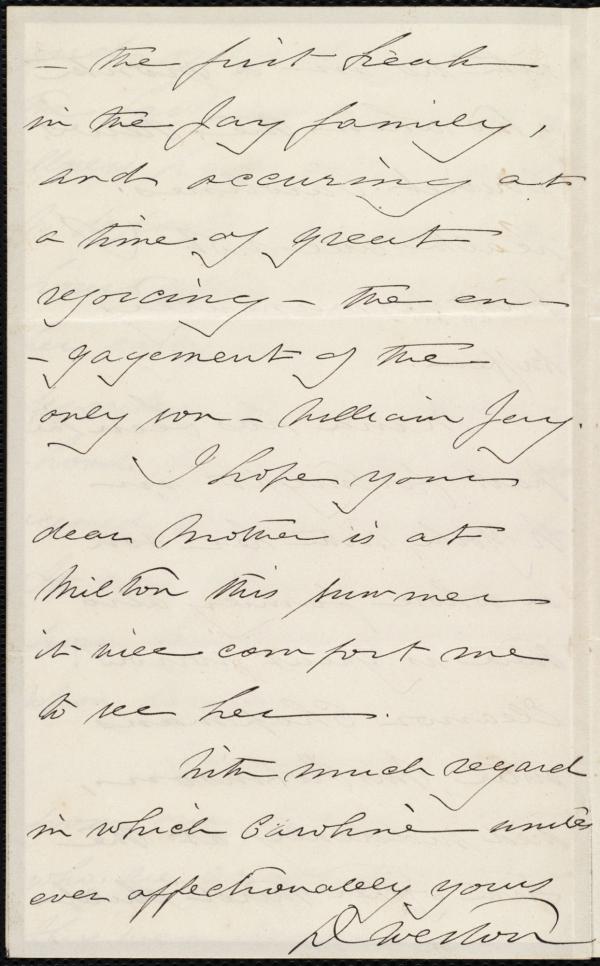 – the first break
in the Jay family,
and occuring at
a time of great
rejoicing – the en-
-gagement of the
only son – William Jay.
I hope your
dear Mother is at
Milton this summer
it will comfort me
to see her.
With much regard
in which Caroline unites
ever affectionately yours
D Weston